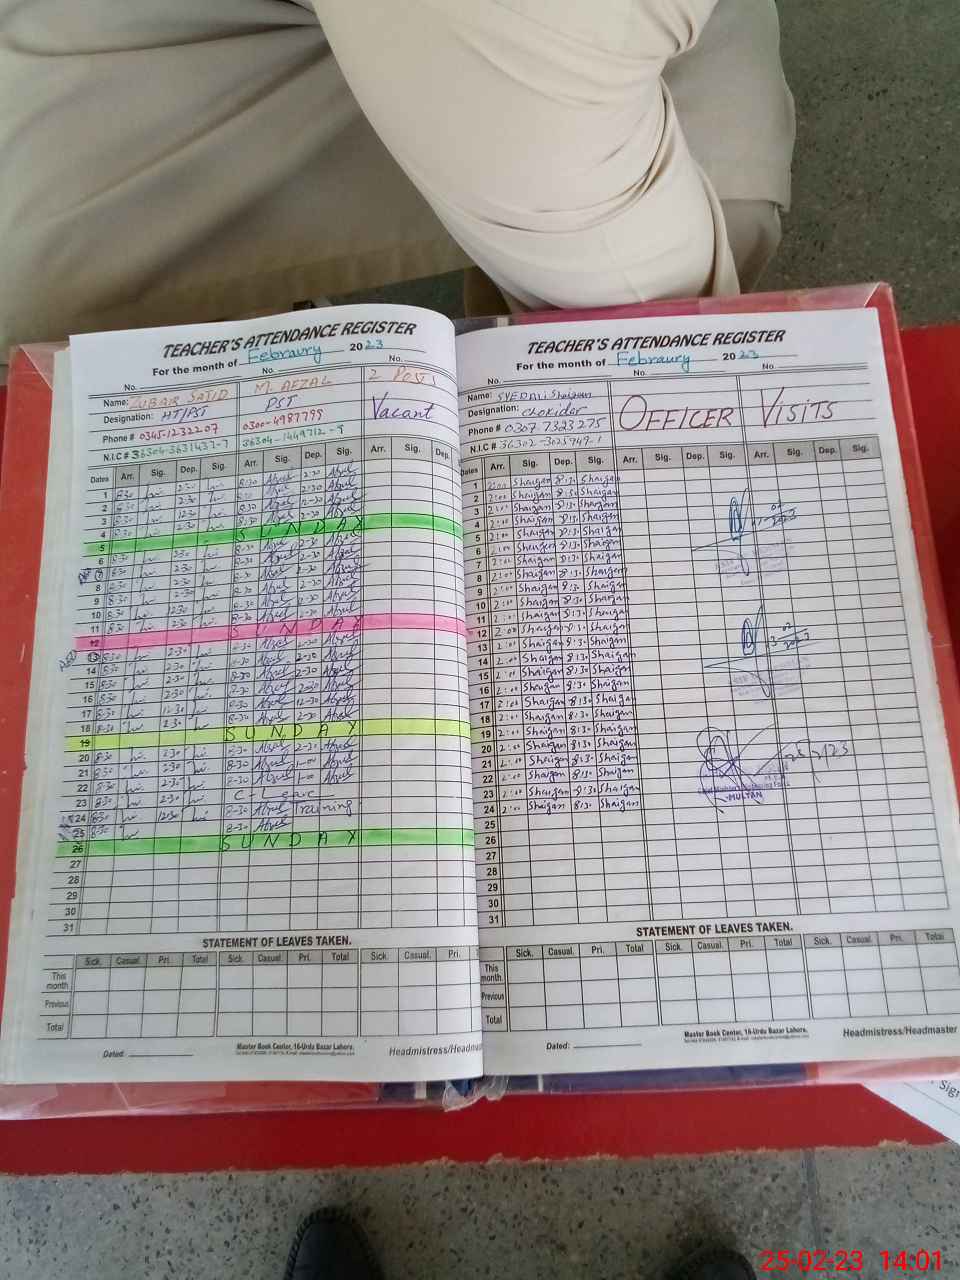 TEACHER'S ATTENDANCE REGISTER
For the month of Febraury 2023
No. No. No.
Name: ZUBAIR SAJID M. AFZAL 2 Post
Designation: HT/PST PST Vacant
Phone # 0345-1232207 0300-4987799
N.I.C # 36304-1449712-9
Dates Arr. Sig. Dep. Sig. Arr. Sig. Dep. Sig. Arr. Sig. Dep.
1 8:30 2-30 8-30 Afzal 2-30 Afzal
2 8:30 2-30 8-30 Afzal 2-30 Afzal
3 8:30 12-30 8-30 Afzal 12-30 Afzal
4 8:30 2-30 8-30 Afzal 2-30 Afzal
5 SUNDAY
6 8:30 2-30 8-30 Afzal 2-30 Afzal
7 8:30 2-30 8-30 Afzal 2-30 Afzal
8 8:30 2-30 8-30 Afzal 2-30 Afzal
9 8:30 2-30 8-30 Afzal 2-30 Afzal
10 8:30 12-30 8-30 Afzal 12-30 Afzal
11 8:30 2-30 8-30 Afzal 2-30 Afzal
12 SUNDAY
13 8:30 2-30 8-30 Afzal 2-30 Afzal
14 8:30 2-30 8-30 Afzal 2-30 Afzal
15 8:30 2-30 8-30 Afzal 2-30 Afzal
16 8:30 2-30 8-30 Afzal 2-30 Afzal
17 8:30 12-30 8-30 Afzal 12-30 Afzal
18 8:30 2-30 8-30 Afzal 2-30 Afzal
19 SUNDAY
20 8:30 2-30 8-30 Afzal 2-30 Afzal
21 8:30 2-30 8-30 Afzal 1-00 Afzal
22 8:30 2-30 8-30 Afzal 1-00 Afzal
23 8:30 2-30 C-Leave
24 8:30 12-30 8-30 Afzal Training
25 8:30 8-30 Afzal
26 SUNDAY
27
28
29
30
31
STATEMENT OF LEAVES TAKEN.
Sick. Casual. Pri. Total Sick. Casual. Pri. Total Sick. Casual. Pri.
This month
Previous
Total
Master Book Center, 16-Urdu Bazar Lahore.
Dated: Headmistress/Headma
TEACHER'S ATTENDANCE REGISTER
For the month of Febraury 2023
No. No. No.
Name: SYED Shaigan
Designation: chokidar OFFICER VISITS
Phone # 0307-7323275
N.I.C # 36302-3025949-1
Dates Arr. Sig. Dep. Sig. Arr. Sig. Dep. Sig. Arr. Sig. Dep. Sig.
1 2:00 Shaigan 8:30 Shaigan
2 2:00 Shaigan 8:30 Shaigan
3 2:00 Shaigan 8:30 Shaigan
4 2:00 Shaigan 8:30 Shaigan
5 2:00 Shaigan 8:30 Shaigan
6 2:00 Shaigan 8:30 Shaigan
7 2:00 Shaigan 8:30 Shaigan
8 2:00 Shaigan 8:30 Shaigan
9 2:00 Shaigan 8:30 Shaigan
10 2:00 Shaigan 8:30 Shaigan
11 2:00 Shaigan 8:30 Shaigan
12 2:00 Shaigan 8:30 Shaigan
13 2:00 Shaigan 8:30 Shaigan
14 2:00 Shaigan 8:30 Shaigan
15 2:00 Shaigan 8:30 Shaigan
16 2:00 Shaigan 8:30 Shaigan
17 2:00 Shaigan 8:30 Shaigan
18 2:00 Shaigan 8:30 Shaigan
19 2:00 Shaigan 8:30 Shaigan
20 2:00 Shaigan 8:30 Shaigan
21 2:00 Shaigan 8:30 Shaigan
22 2:00 Shaigan 8:30 Shaigan
23 2:00 Shaigan 8:30 Shaigan
24 2:00 Shaigan 8:30 Shaigan
MULTAN
25
26
27
28
29
30
31
STATEMENT OF LEAVES TAKEN.
Sick. Casual. Pri. Total Sick. Casual. Pri. Total Sick. Casual. Pri. Total
This month
Previous
Total
Master Book Center, 16-Urdu Bazar Lahore.
Dated: Headmistress/Headmaster
Sig
25-02-23 14:01